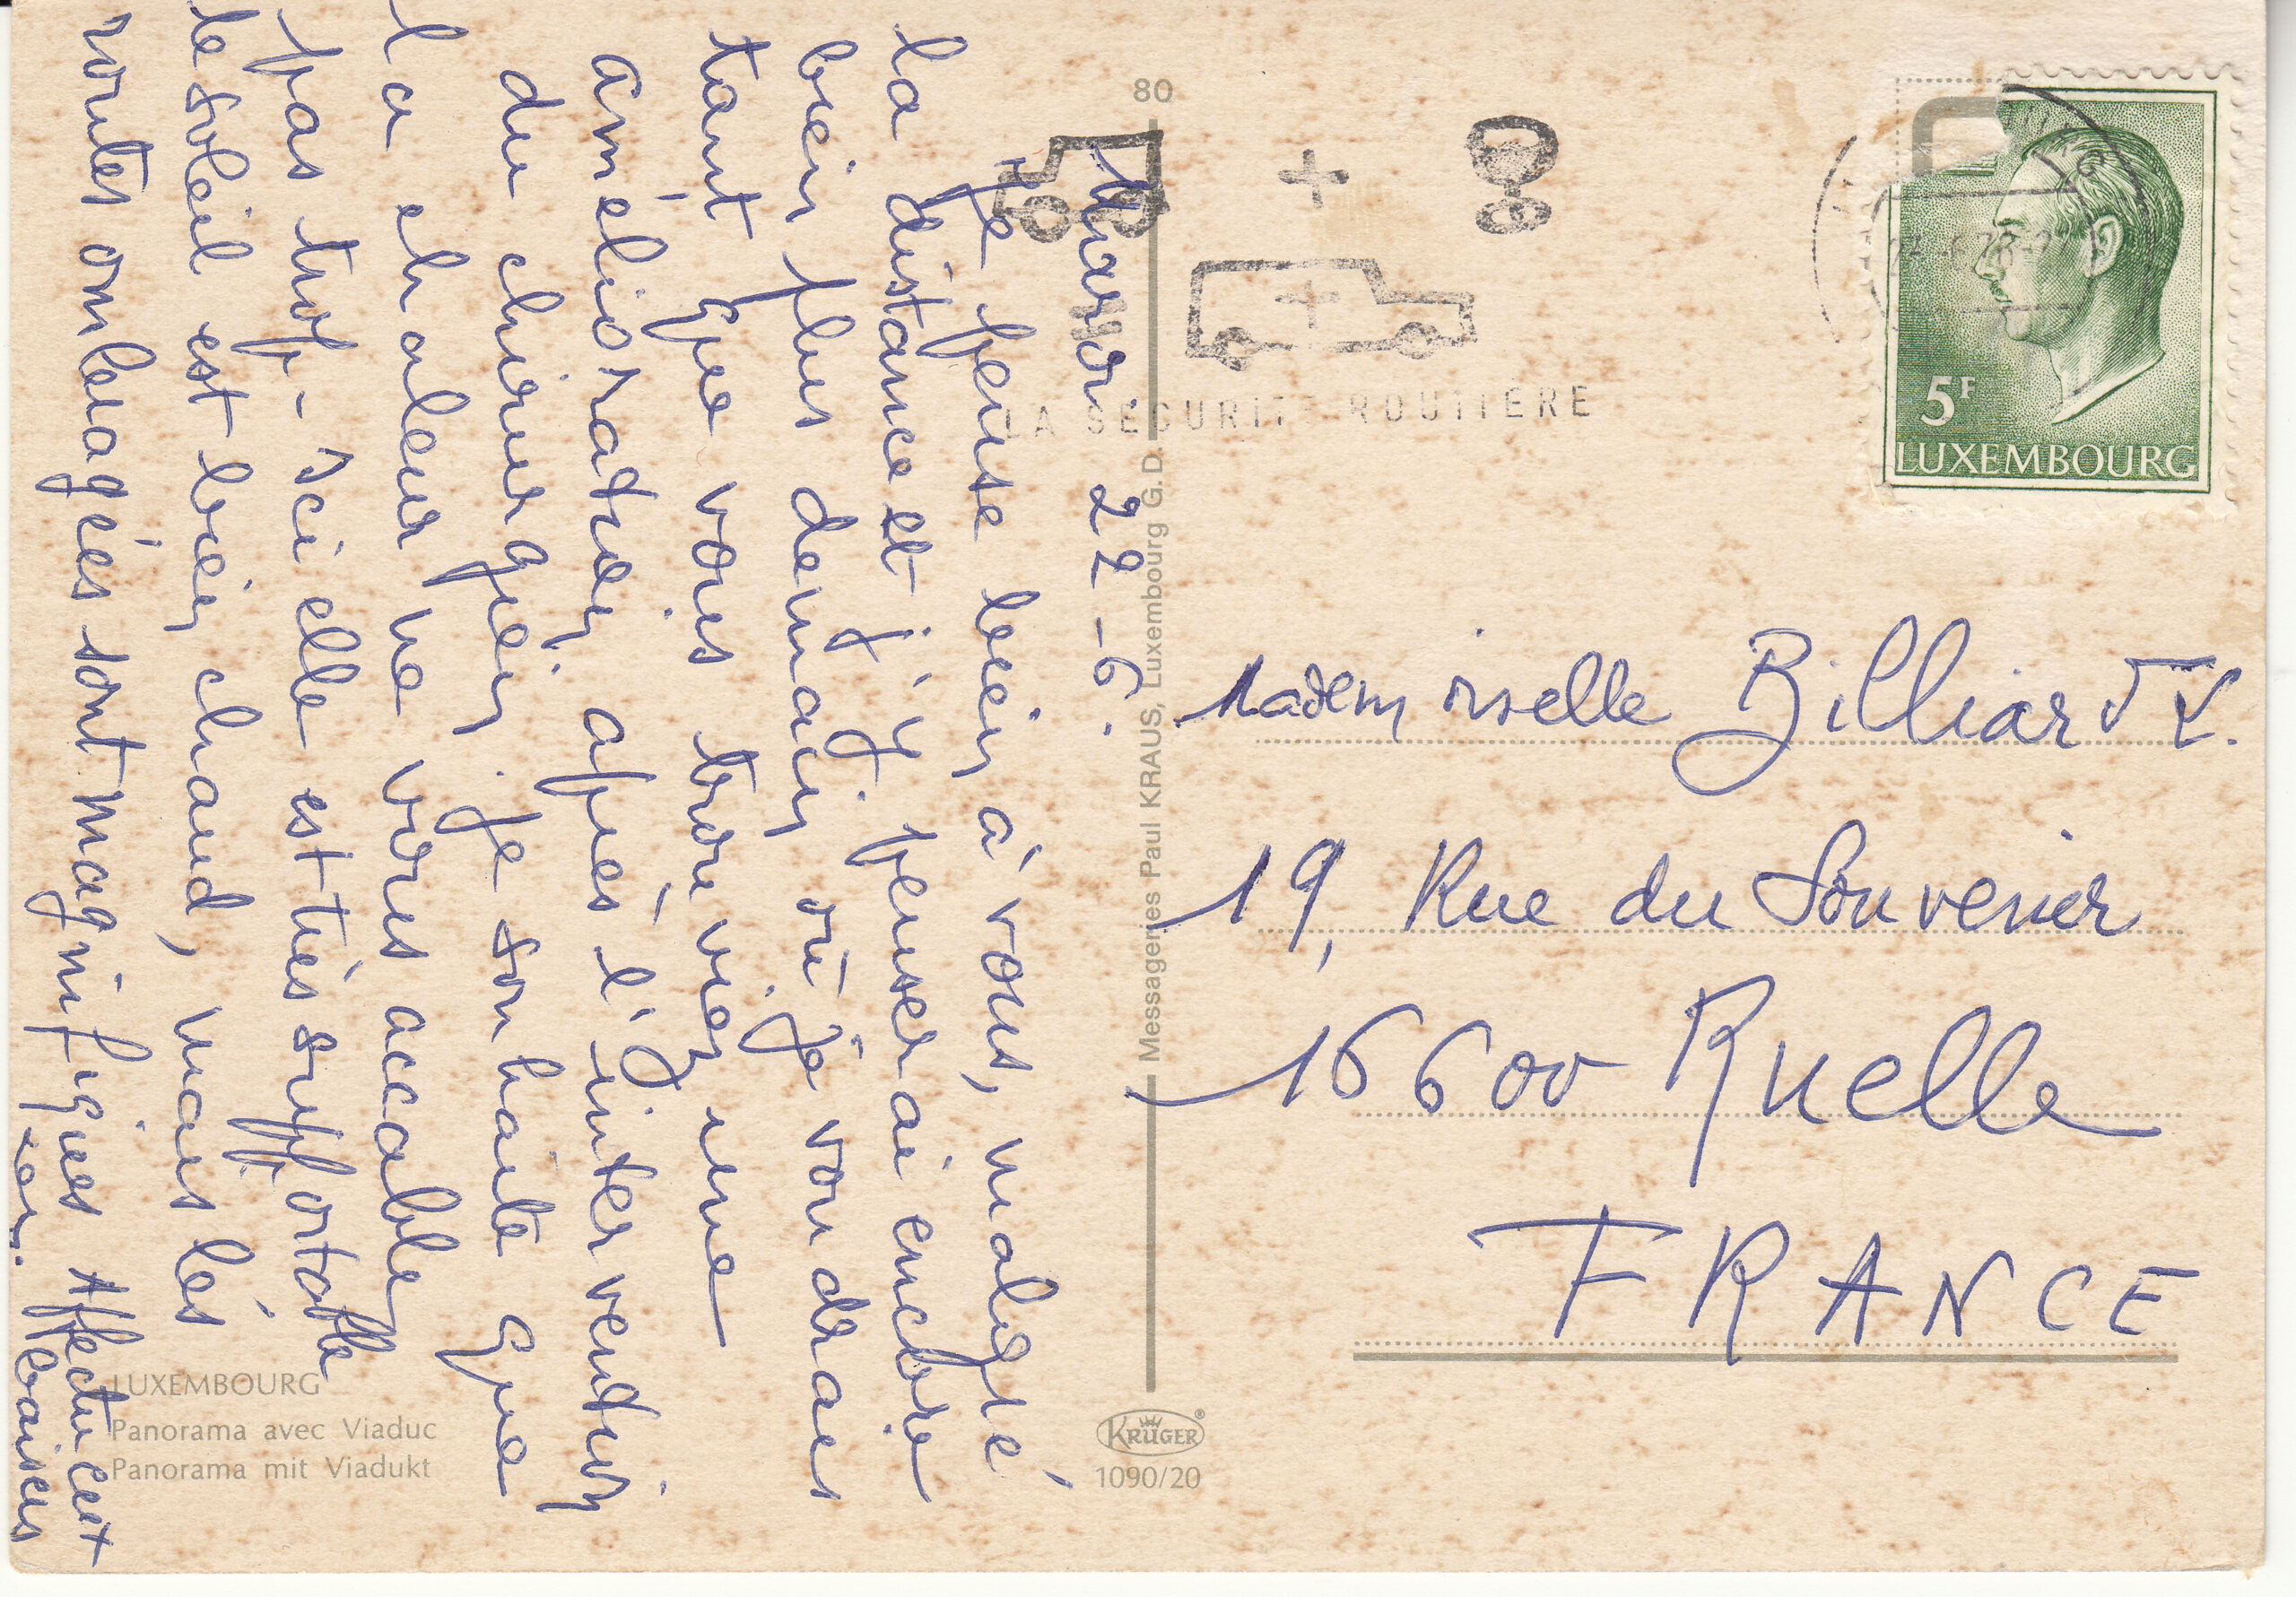 Mardi 22-6.
Je pense bien à vous, malgré
la distance et j'y penserai encore
bien plus demain où je voudrais
tant que vous trouviez une
amélioration après l'intervention
du chirurgien. Je souhaite que
la chaleur ne vous accable
pas trop - Ici elle est très supportable
le soleil est bien chaud, mais les
routes ombragées sont magnifiques Affectueux
baisers
Mademoiselle Billiard Y.
19, Rue du Souvenir
16600 Ruelle
FRANCE
80
LA SECURITE ROUTIERE
5F
LUXEMBOURG
Messageries Paul KRAUS, Luxembourg G.D.
LUXEMBOURG
Panorama avec Viaduc
Panorama mit Viadukt
KRÜGER
1090/20